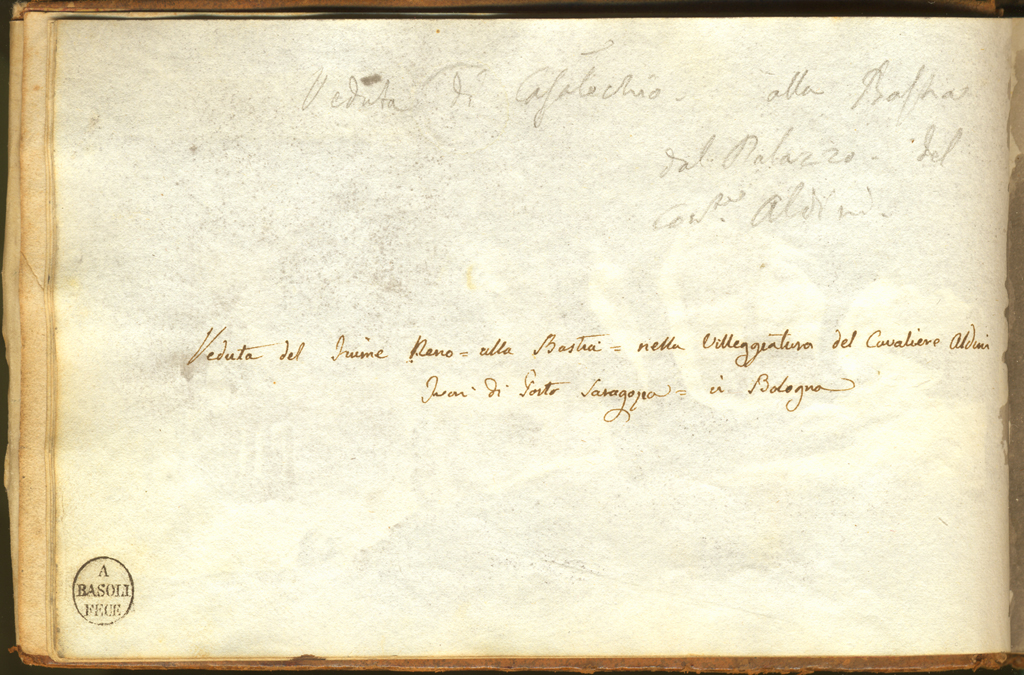 Veduta di Casalechio. alla Bastia
dal Palazzo. del
Aldini.
Veduta del fiume Reno = alla Bastia = nella Villeggiatura del Cavaliere Aldini
fuori di Porta Saragozza = in Bologna
A
BASOLI
FECE